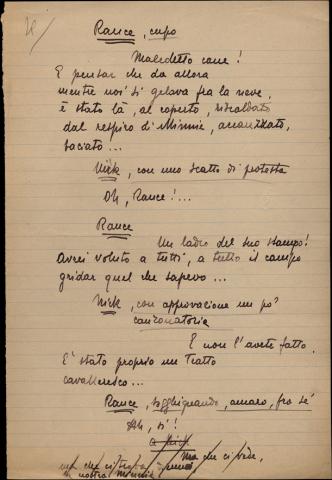 Rance, cupo
Maledetto cane!
E pensar che da allora
mentre noi si gelava fra la neve,
è stato là, al coperto, riscaldato
dal respiro di Minnie, accarezzato,
baciato...
Nick, con uno scatto di protesta
Oh, Rance!...
Rance
Un ladro del suo stampo!
Avrei voluto a tutti, a tutto il campo
gridar quel che sapevo...
Nick, con approvazione un po'
canzonatoria
E non l'avete fatto.
E' stato proprio un tratto
cavalleresco...
Rance, sogghignando, amaro, fra sè
Ah, sì!
Ma che ci vede,
ma che ci trova
la nostra Minnie